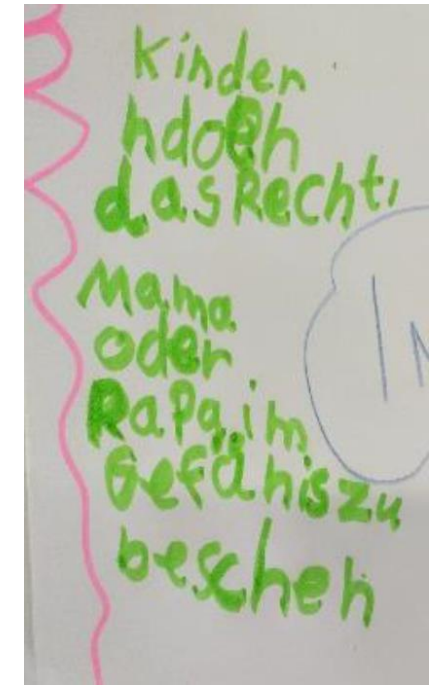 Kinder
hdoeh
das Recht,
Mama
oder
Papa, im
Gefänis zu
beschen
IN